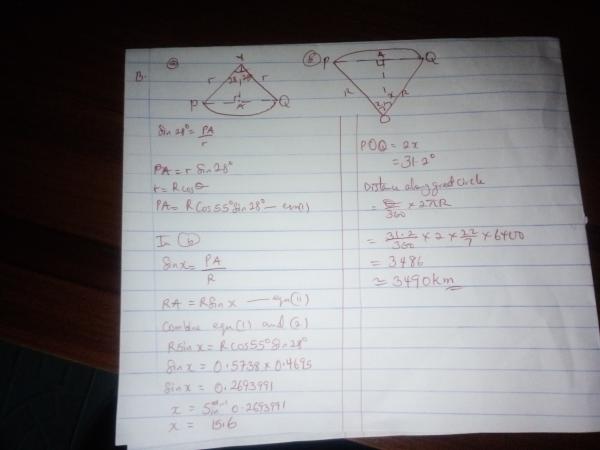 B.
(a)
X
r
28 28
r
P
A
Q
Sin 28° = PA/r
PA = r Sin 28°
r = R Cos θ
PA = R Cos 55° Sin 28° — eqn(1)
In (b)
Sin x = PA/R
RA = R Sin x — eqn(11)
Combine eqn (1) and (2)
R Sin x = R Cos 55° Sin 28°
Sin x = 0.5738 × 0.4695
Sin x = 0.2693991
x = Sin⁻¹ 0.2693991
x = 15.6
(b)
P
A
Q
R
x
x
R
O
POQ = 2x
= 31.2°
Distance along great circle
= θ/360 × 2πR
= 31.2/360 × 2 × 22/7 × 6400
= 3486
≃ 3490 km